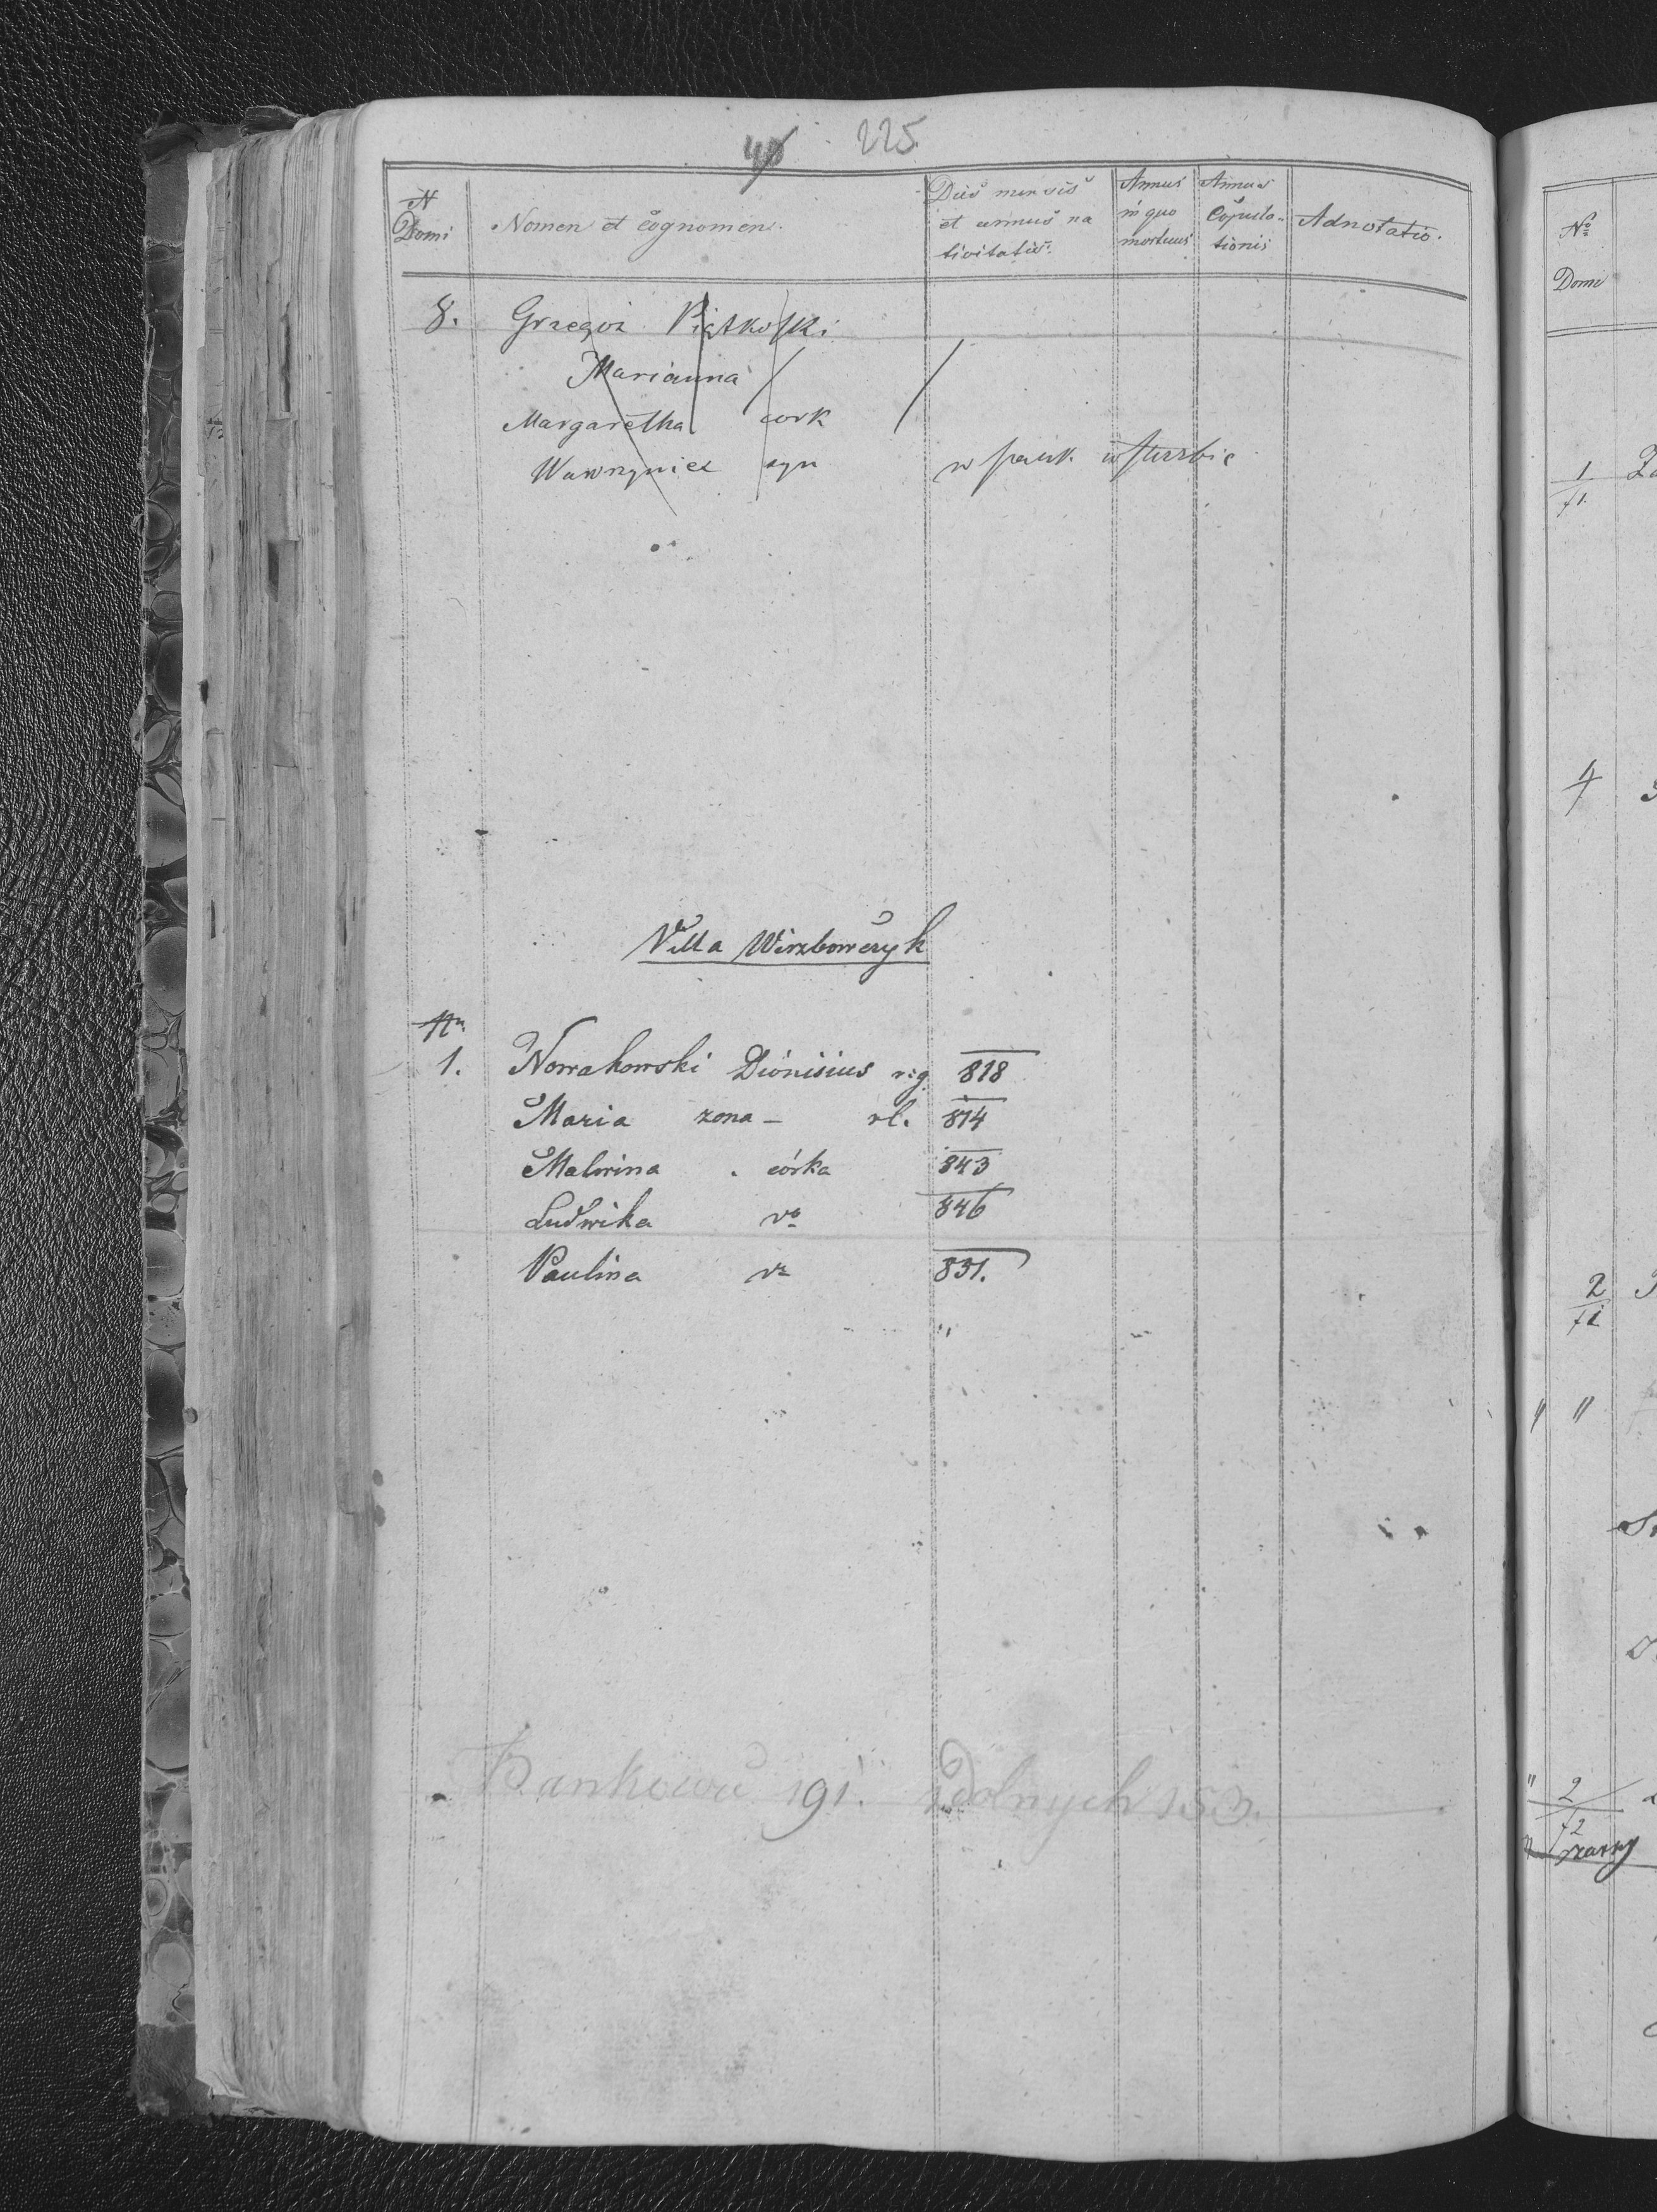 225
N Domi
Nomen et Cognomen.
Dies mensis et annus nativitatis.
Annus in quo mortuus
Annus Copulationis
Adnotatio.
8. Grzegoz Piątkoski
Marianna
Margaretha cork
Wawrzyniec syn
Villa Wirzbowczyk
Nr
1. Nowakowski Dionisius rg 818
Maria zona - rl. 814
Malwina córka 843
Ludwika 846
Paulina 851.
Bankowo 191. Zdolnych 153.
No Domi
1
f1.
4
2
f1
" "
" 2
f2